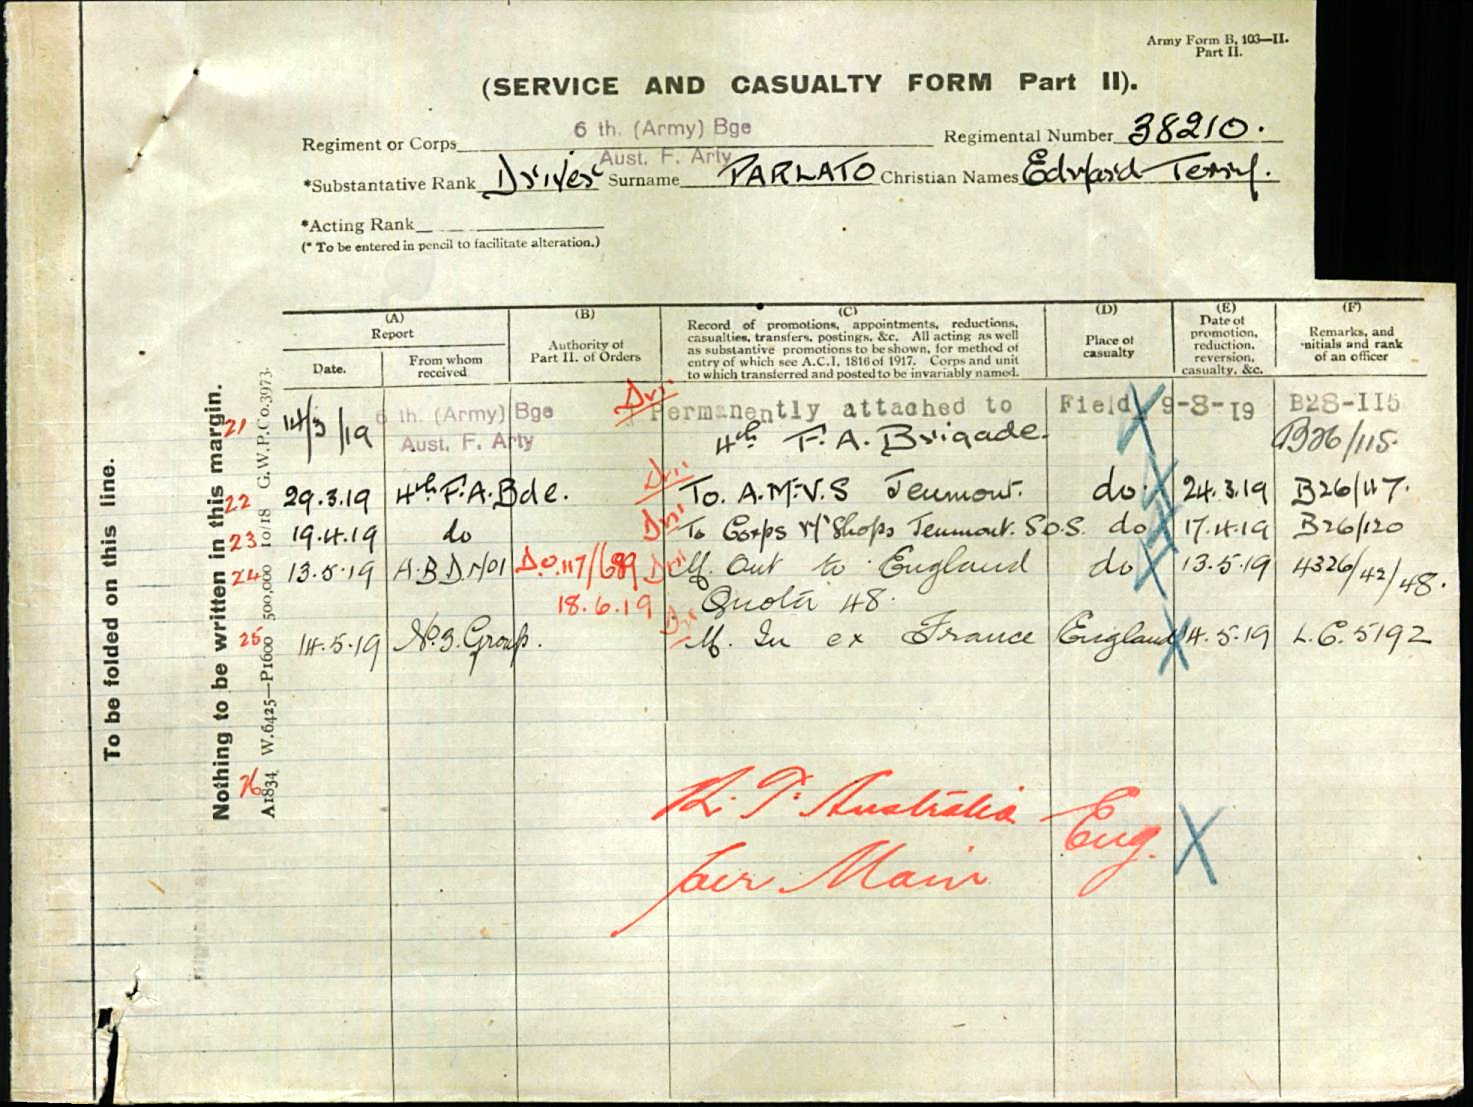 Army Form B. 103—II.
Part II.
(SERVICE AND CASUALTY FORM Part II).
6 th. (Army) Bge
Regiment or Corps Regimental Number 38210.
Aust. F. Arty
*Substantative Rank Driver Surname PARLATO Christian Names Edward Terry.
*Acting Rank
(* To be entered in pencil to facilitate alteration.)
(A) (B) (C) (D) (E) (F)
Report
Date. From whom received
Authority of Part II. of Orders
Record of promotions, appointments, reductions,
casualties, transfers, postings, &c. All acting as well
as substantive promotions to be shown, for method of
entry of which see A.C.I. 1816 of 1917. Corps and unit
to which transferred and posted to be invariably named.
Place of casualty
Date of promotion, reduction, reversion, casualty, &c.
Remarks, and initials and rank of an officer
21 14/3/19 6 th. (Army) Bge Dvr. Permanently attached to Field 9-3-19 B28-115
Aust. F. Arty 4th F. A. Brigade. B26/115.
22 29.3.19 4th F.A. Bde. Dvr. To. A.M.V.S Jeumont. do. 24.3.19 B26/117.
23 19.4.19 do Dvr. To Corps W/Shops Jeumont. S.O.S. do 17.4.19 B26/120
24 13.5.19 A.B.D. No1 D.O.117/689 Dvr M. Out to England do 13.5.19 4326/42/48.
18.6.19 Quota 48.
25 14.5.19 No. 3. Group. Dvr M. In ex France England 14.5.19 L.C. 5192
26 R. T. Australia Eng.
per Main
To be folded on this line.
Nothing to be written in this margin.
A1834 W.6425—P1600 500,000 10/18 G.W.P.Co.3973.